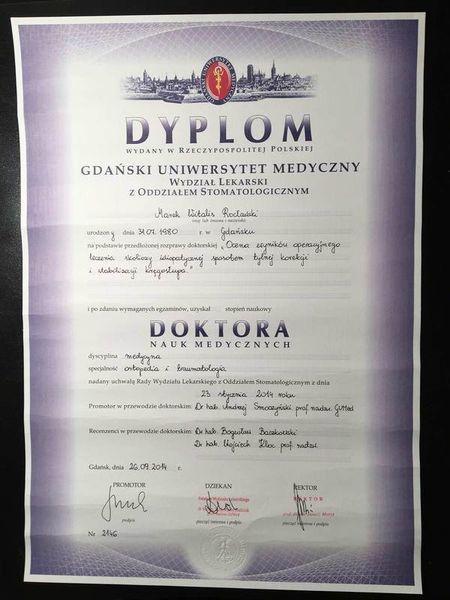 DYPLOM
WYDANY W RZECZYPOSPOLITEJ POLSKIEJ
GDAŃSKI UNIWERSYTET MEDYCZNY
WYDZIAŁ LEKARSKI
Z ODDZIAŁEM STOMATOLOGICZNYM
Marek Witalis Rocławski
imię lub imiona i nazwisko
urodzony dnia 31.07.1980 r. w Gdańsku
na podstawie przedłożonej rozprawy doktorskiej „Ocena wyników operacyjnego
leczenia skoliozy idiopatycznej sposobem tylnej korekcji
i stabilizacji kręgosłupa."
i po zdaniu wymaganych egzaminów, uzyskał stopień naukowy
DOKTORA
NAUK MEDYCZNYCH
dyscyplina medycyna
specjalność ortopedia i traumatologia
nadany uchwałą Rady Wydziału Lekarskiego z Oddziałem Stomatologicznym z dnia
23 stycznia 2014 roku
Promotor w przewodzie doktorskim: Dr hab. Andrzej Smoczyński prof. nadzw. GUMed
Recenzenci w przewodzie doktorskim: Dr hab. Bogusław Baczkowski
Dr hab. Wojciech Kloc prof. nadzw.
Gdańsk, dnia 26.09.2014 r.
PROMOTOR DZIEKAN REKTOR
REKTOR
podpis pieczęć imienna i podpis pieczęć imienna i podpis
Nr 2146